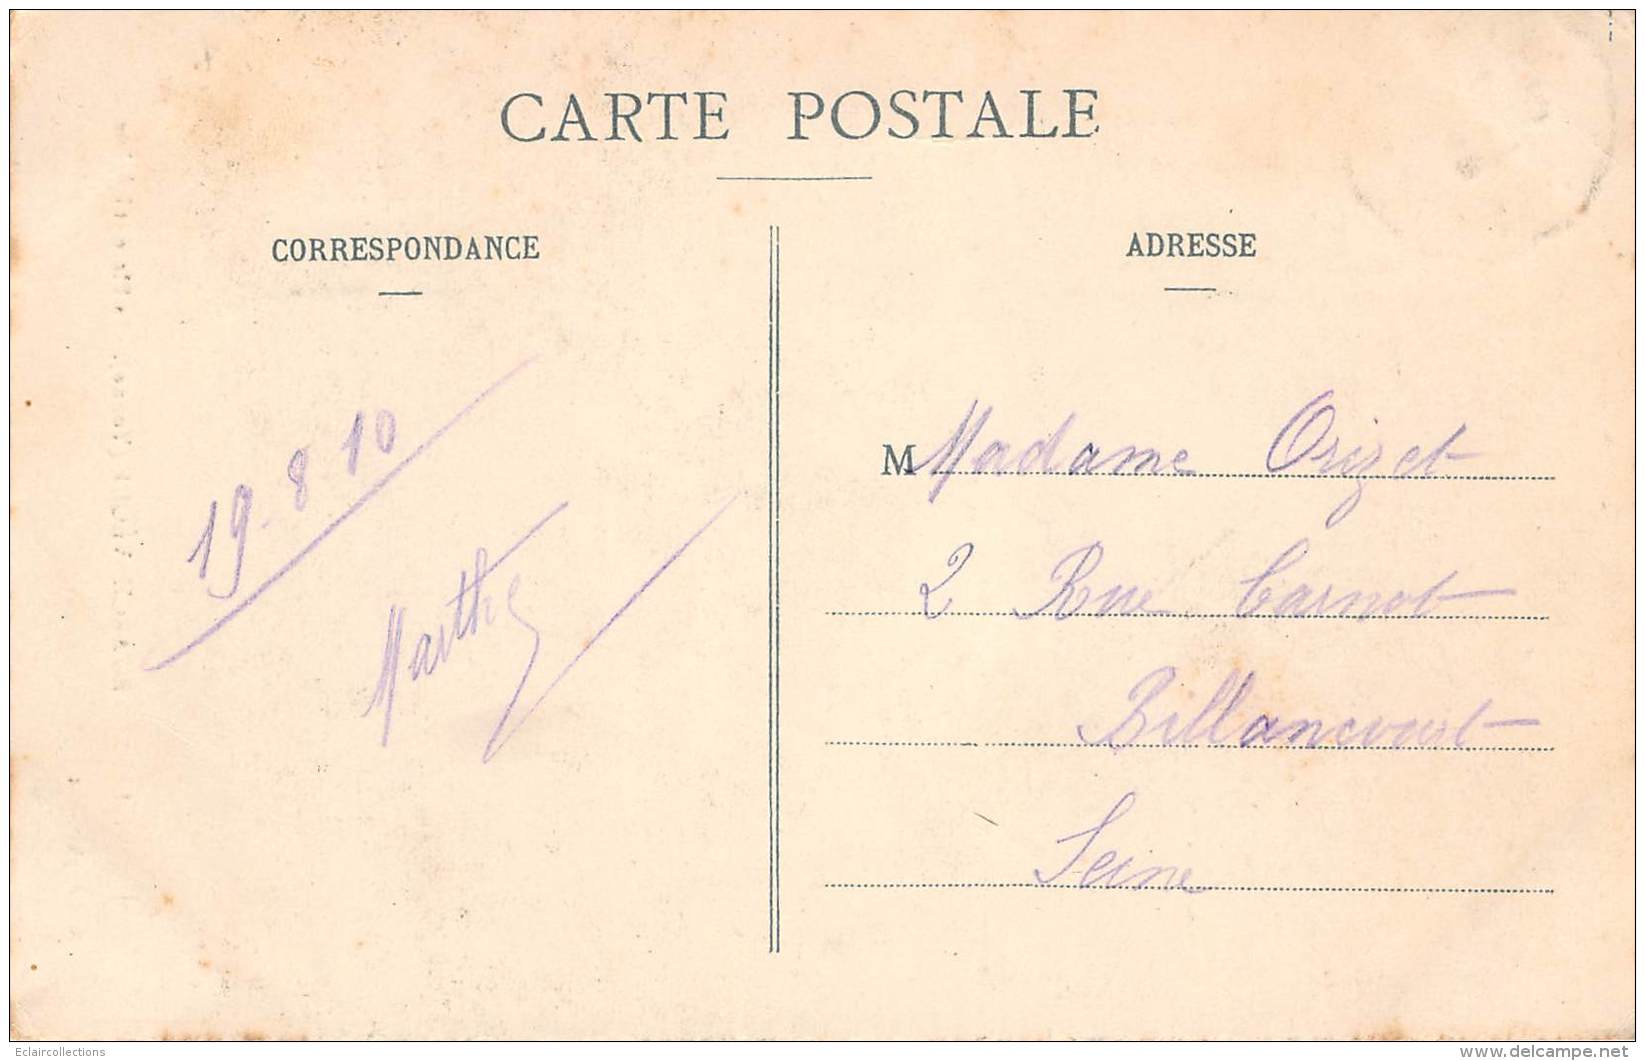 CARTE POSTALE
CORRESPONDANCE
19-8-10
Marthe
ADRESSE
M Madame Orizet
2 Rue Carnot
Billancourt
Seine
Eclaircollections
delcampe.net